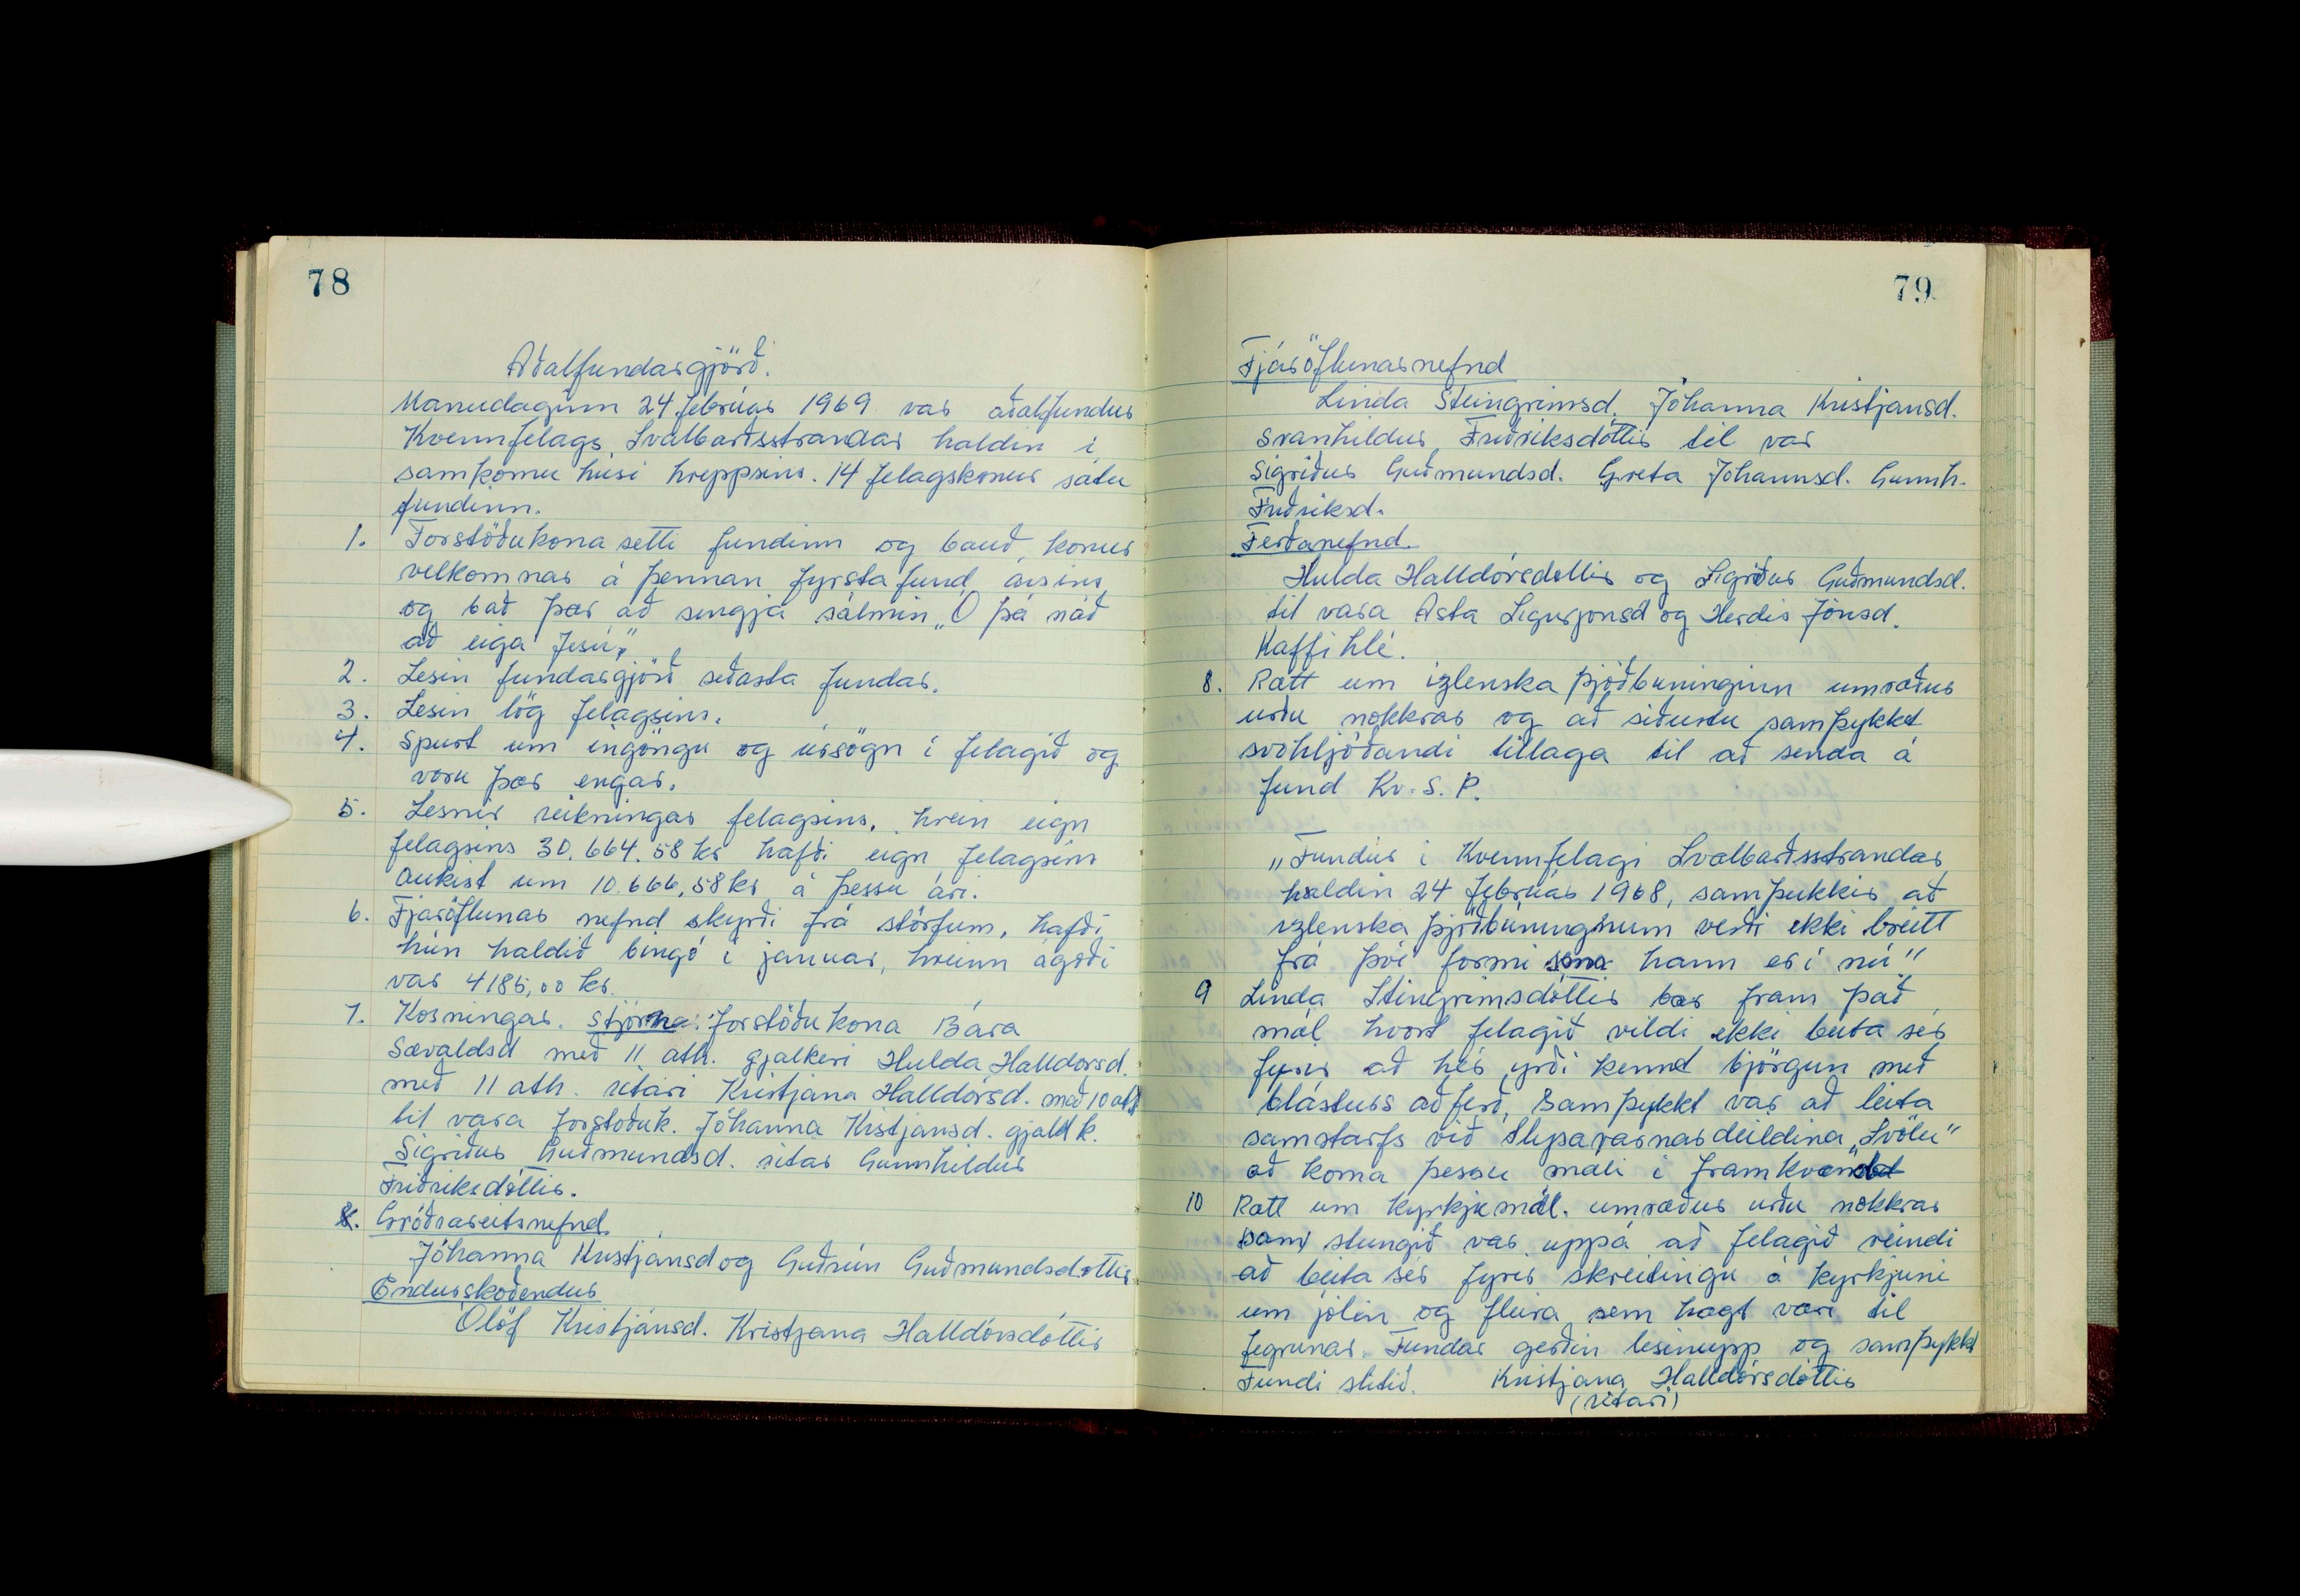 78
Aðalfundargjörð.
Manudaginn 24 februar 1969 var aðalfundur
Kvennfelags Svalbarðsstrandar haldin í
samkomu húsi hreppsins. 14 felagskonur sátu
fundinn.
1. Forstöðukona setti fundinn og bauð konur
velkomnar á þennan fyrsta fund ársins
og bað þær að sengja sálmin „Ó þá náð
að eiga Jesú"
2. Lesin fundargjörð seðasta fundar.
3. Lesin lög felagsins.
4. Spurt um ingöngu og úrsögn í felagið og
voru þær engar.
5. Lesnir reikningar felagsins. hrein eign
felagsins 30.664.58 kr hafði eign felagsins
aukist um 10.666,58 kr á þessu ári.
6. Fjaröflunar nefnd skyrði frá störfum, hafði
hún haldið bingó í januar, hreinn ágóði
var 4185,00 kr.
7. Kosningar. stjórna: forstöðu kona Bára
Sævaldsd með 11 atk. gjalkeri Hulda Halldorsd.
með 11 atk. ritari Kristjana Halldórsd. með 10 atk
til vara forstoðuk. Jóhanna Kristjansd. gjaldk.
Sigriður Guðmundsd. ritar Gunnhildur
Friðriksdóttir.
8. Gróðrareitsnefnd
Jóhanna Kristjánsd og Guðrún Guðmundsdottir
Endurskoðendur
Ólöf Kristjánsd. Kristjana Halldórsdóttir
79
Fjáröflunarnefnd
Linda Steingrimsd. Jóhanna Kristjansd.
Svanhildur Friðriksdóttir til var
Sigriður Guðmundsd. Greta Jóhannsd. Gunnh.
Friðriksd.
Ferðanefnd.
Hulda Halldórsdóttir og Sigriður Guðmundsd.
til vara Asta Sigurjonsd og Herdis Jónsd.
Kaffihlé.
8. Rætt um izlenska þjóðbuninginn umræður
urðu nokkrar og að siðustu samþykkt
svohljóðandi tillaga til að senda á
fund Kv. S. Þ.
„Fundur i Kvennfelagi Svalbarðsstrandar
haldin 24 februar 1968, samþukkir að
izlenska þjóðbúninginum verði ekki breitt
frá því formi sem hann er í nú"
9 Linda Steingrimsdóttir bar fram það
mál hvort felagið vildi ekki beita sér
fyrir að hér yrði kennd björgun með
blásturs aðferð, Samþykkt var að leita
samstarfs við Slysavarnardeildina „Svölu"
að koma þessu máli i framkvæmd
10 Rætt um kyrkjumál. umræður urðu nokkrar
stungið var uppá að felagið reindi
að beita sér fyrir skreitingu á kyrkjuni
um jólin og fleira sem hægt væri til
fegrunar. Fundar gerðin lesinupp og samþykkt
Fundi slitið. Kristjana Halldórsdóttir
(ritari)